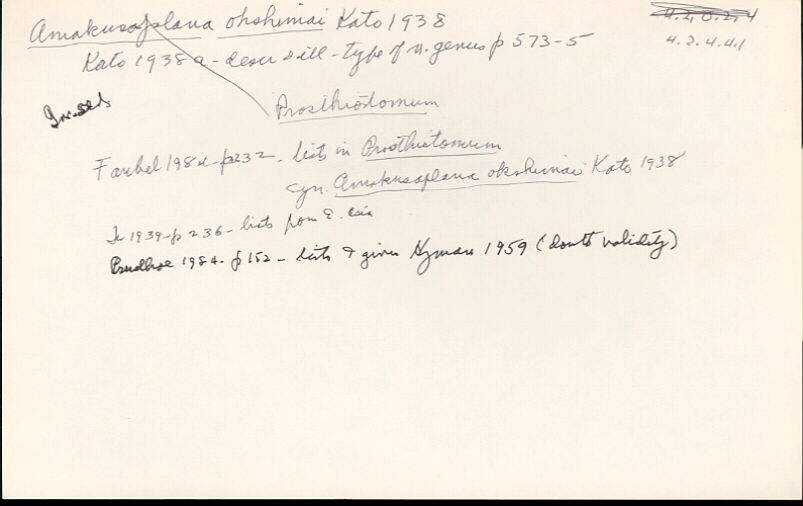 Amakusaplana ohshimai Kato 1938
4.2.0.2.4
4.2.4.4.1
Kato 1938a - descr & ill - type of n. genus p 573-5
Prosthiostomum
Faubel 1984 - p232. lists in Prosthiostomum
syn. Amakusaplana ohshimai Kato 1938
1939 - p 236 - lists from E. Asia
Prudhoe 1984. p 152 - lists & gives Hyman 1959 (doubts validity)